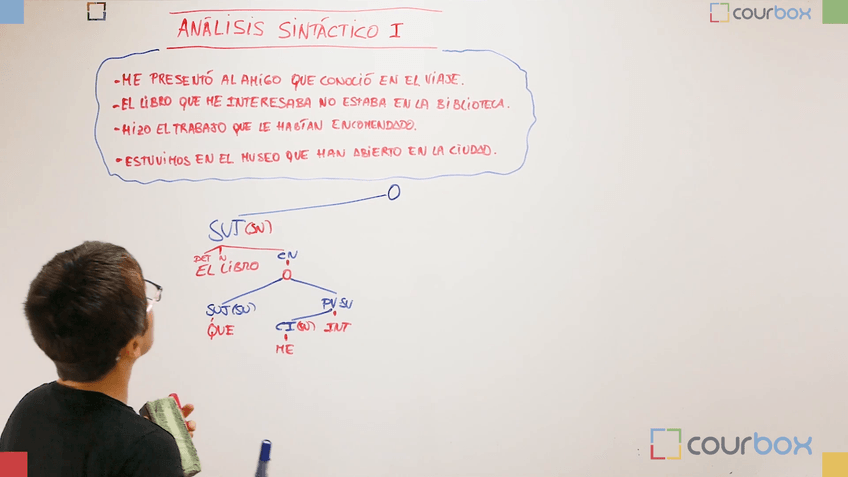 courbox
ANÁLISIS SINTÁCTICO I
-ME PRESENTÓ AL AMIGO QUE CONOCIÓ EN EL VIAJE.
-EL LIBRO QUE ME INTERESABA NO ESTABA EN LA BIBLIOTECA.
-HIZO EL TRABAJO QUE LE HABÍAN ENCOMENDADO.
-ESTUVIMOS EN EL MUSEO QUE HAN ABIERTO EN LA CIUDAD.
O
SUJ(SN)
DET N CN
EL LIBRO O
SUJ(SN) PV SV
QUE CI(SN) INT
ME
courbox